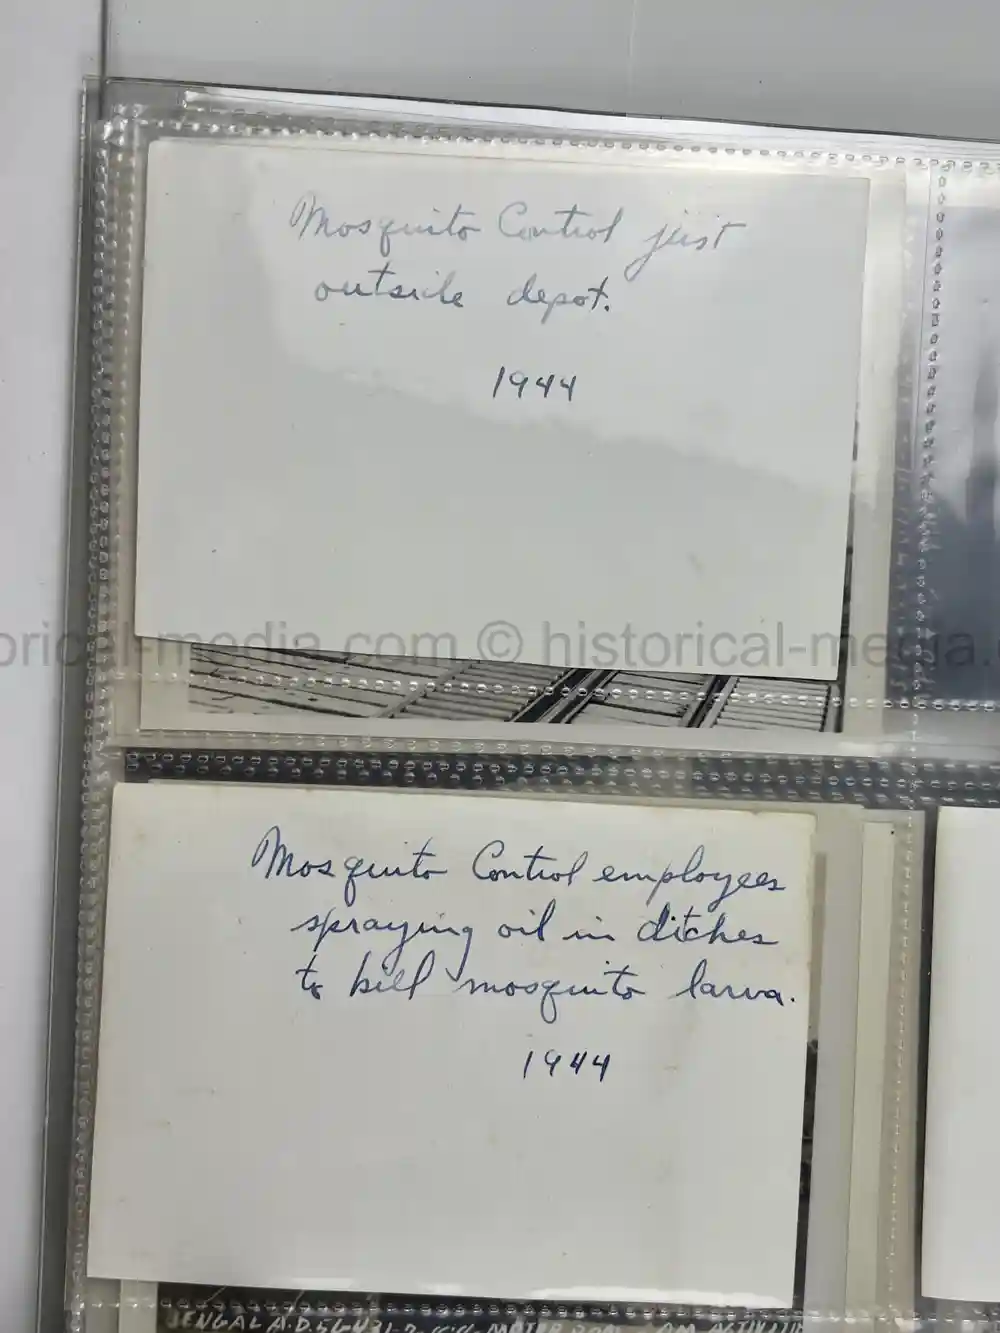 Mosquito Control just
outside depot.
1944
orical-media.com © historical-media.
Mosquito Control employees
spraying oil in ditches
to kill mosquito larva.
1944
BENGAL A.D.